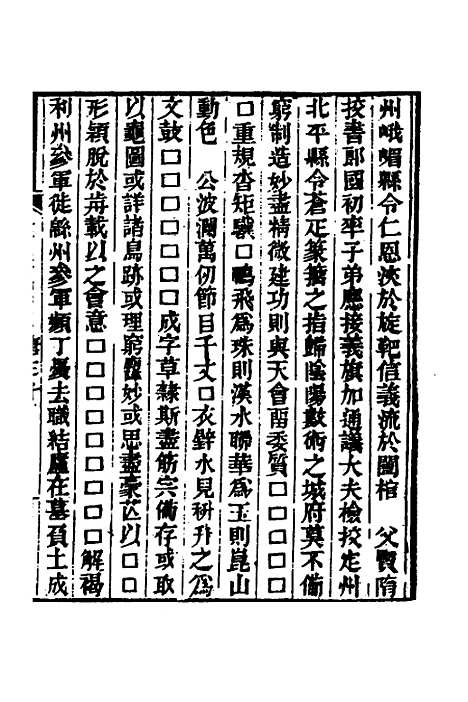 州峨嵋縣令仁恩浹於旌靶信義流於閨棺　父賢隋
挍書郎國初率子弟應接義旗加通議大夫檢挍定州
北平縣令蒼疋篆籀之指歸陰陽數術之城府莫不備
窮制造妙盡精微建功則與天會酉委質□□□□
□重規沓矩驥□鴨飛爲珠則漢水聯華爲玉則崑山
動色　公波瀾萬仞節目千丈□衣鐸水見秤升之爲
文鼓□□□□□□□成字草隸斯盡筋宗備存或取
以龜圖或詳諸鳥跡或理窮麗妙或思盡豪芒以□□
形穎脫於冉載以之會意□□□□□□□□□解褐
利州參軍徙緜州參軍頻丁憂去職結廬在墓負土成